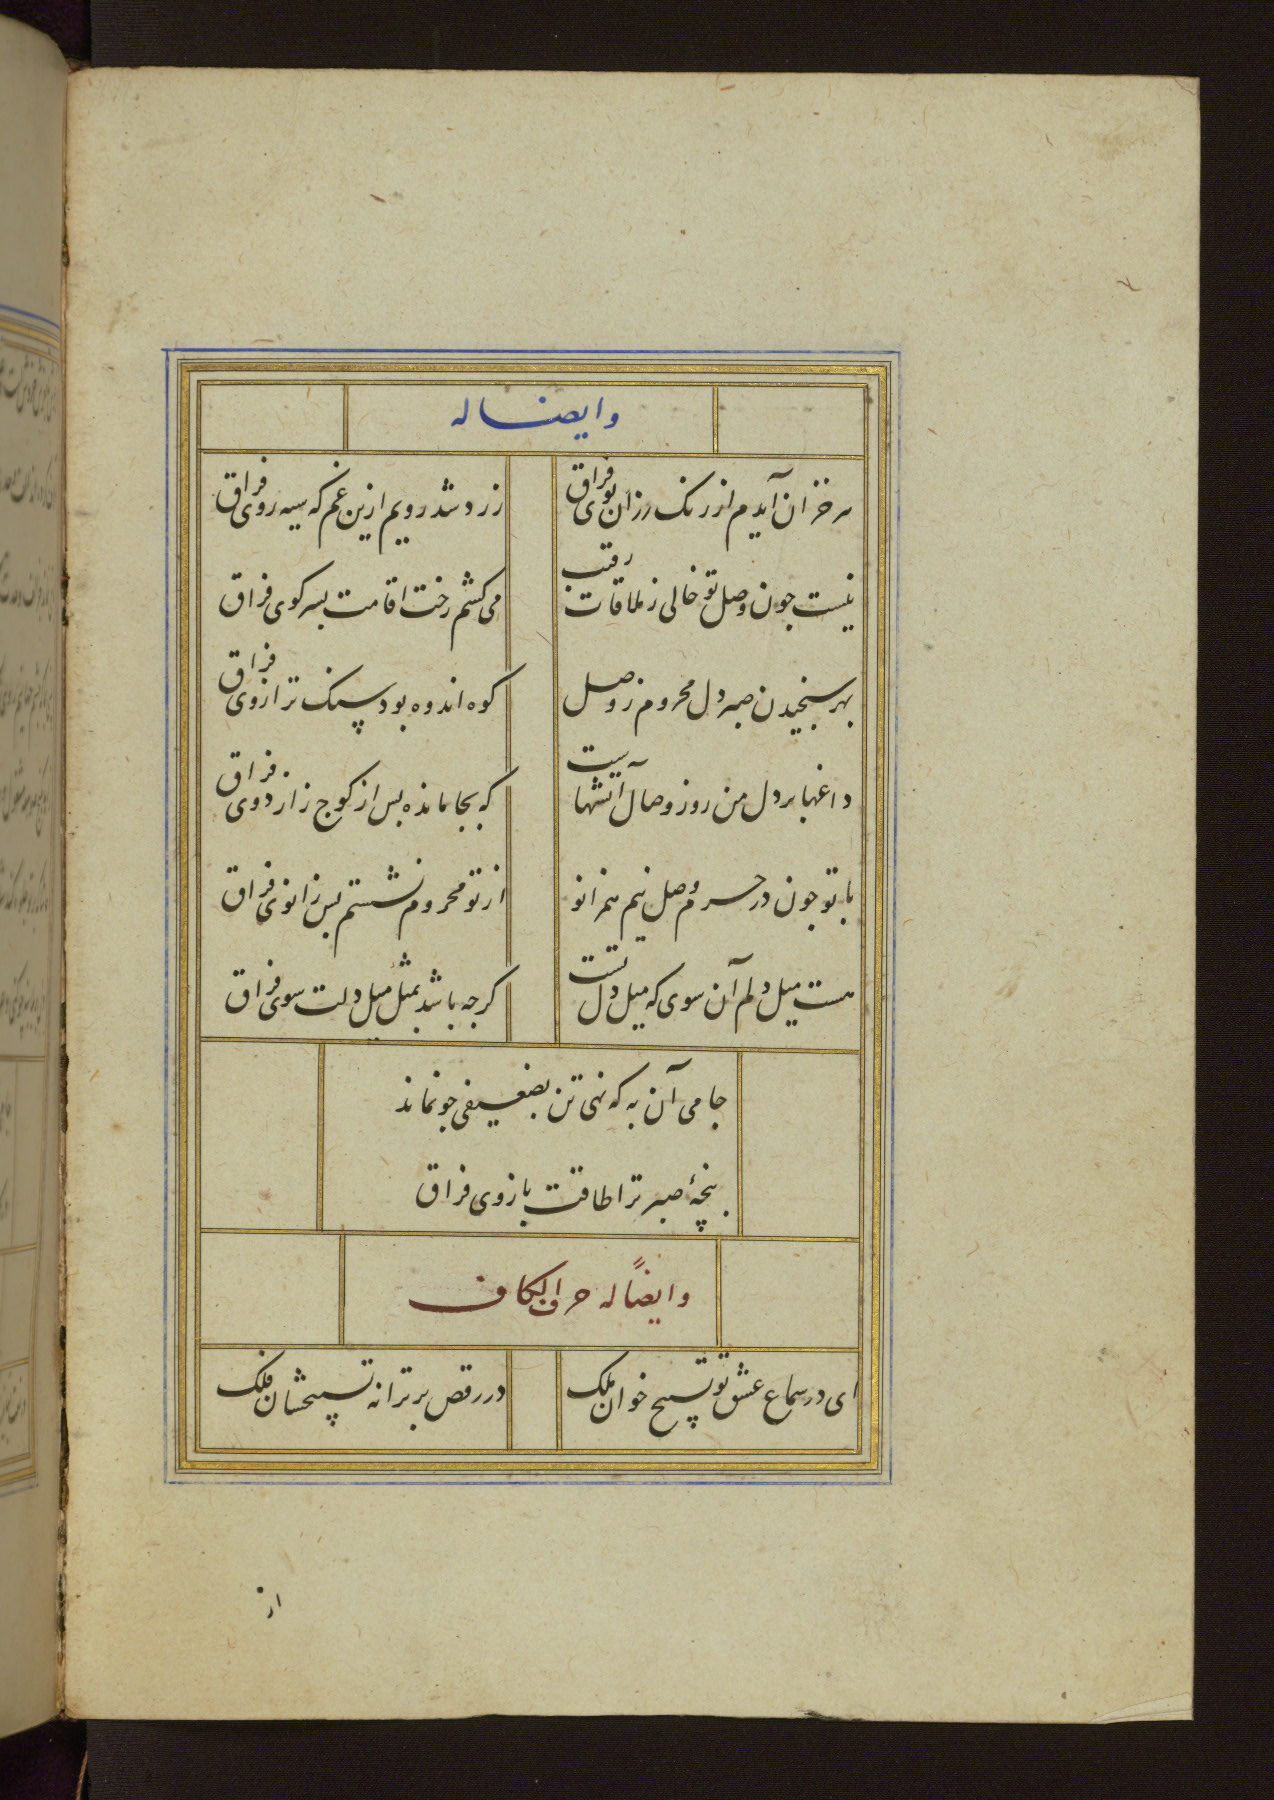 وایضا له
هر خزان آیدم از رنک رزان بوی فراق
زرد شد رویم ازین غم که سیه روی فراق
نیست جون وصل تو خالی ز ملاقات رقیب
می کشم رخت اقامت بسر کوی فراق
بهر سنجیدن صبر دل محروم ز وصل
کوه اندوه بود سنک ترازوی فراق
داغها بر دل من روز وصال آتشهاست
که بجا مانده بس از کوج ز اردوی فراق
با تو جون در حرم وصل نیم همزانو
از تو محروم نشستم بس زانوی فراق
هست میل دلم آن سوی که میل دل تست
کرجه باشد بمثل میل دلت سوی فراق
جامی آن به که نهی تن بضعیفی جو نماند
بنجهٔ صبر ترا طاقت بازوی فراق
وایضاً له حرف الکاف
ای در سماع عشق تو تسبیح خوان ملک
در رقص بر ترانه تسبیحشان فلک
از